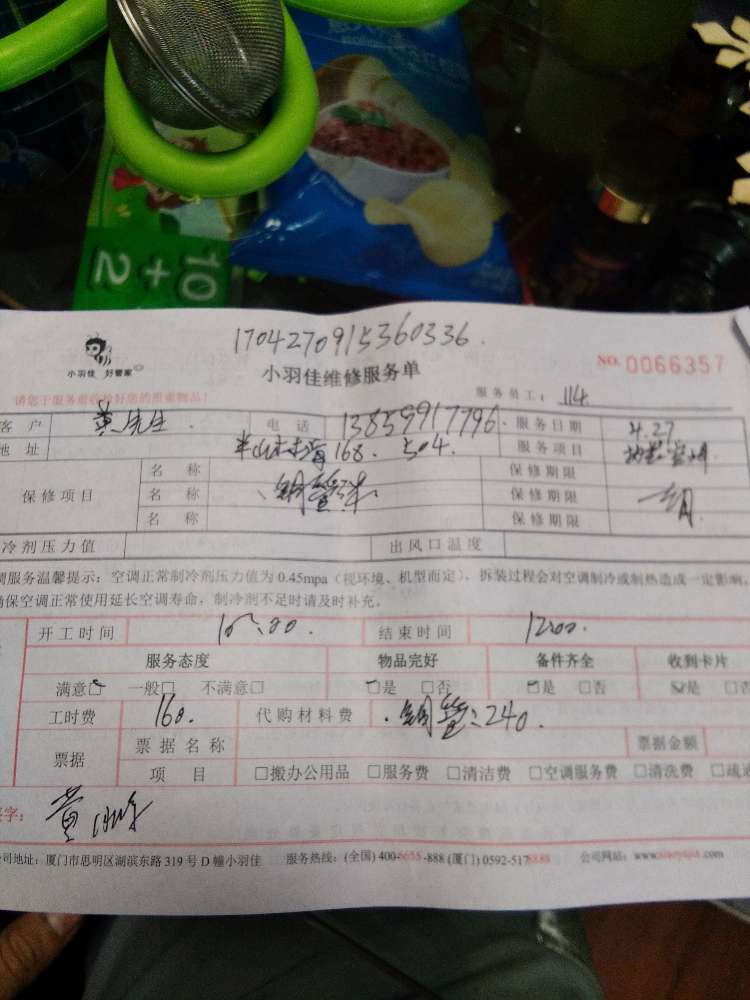 10+2
1704270915360336.
小羽佳 好管家
小羽佳维修服务单
NO. 0066357
请您于服务前收检好您的贵重物品!
服务员工: 114
客户 黄先生. 电话 13859917796. 服务日期 4.27
地址 168. 504. 服务项目
保修项目 名称 保修期限
名称 铜管 保修期限
名称 保修期限
冷剂压力值 出风口温度
调服务温馨提示:空调正常制冷剂压力值为 0.45mpa(视环境、机型而定),拆装过程会对空调制冷或制热造成一定影响。
确保空调正常使用延长空调寿命,制冷剂不足时请及时补充。
开工时间 10:00. 结束时间 12:00.
服务态度 物品完好 备件齐全 收到卡片
满意☑ 一般□ 不满意□ ☑是 □否 ☑是 □否 ☑是 □否
工时费 160. 代购材料费 铜管:240.
票据 票据名称 票据金额
项目 □搬办公用品 □服务费 □清洁费 □空调服务费 □清洗费 □疏
签字: 黄
公司地址:厦门市思明区湖滨东路 319 号 D 幢小羽佳 服务热线:(全国) 400-6655-888 (厦门) 0592-5178888 公司网站: